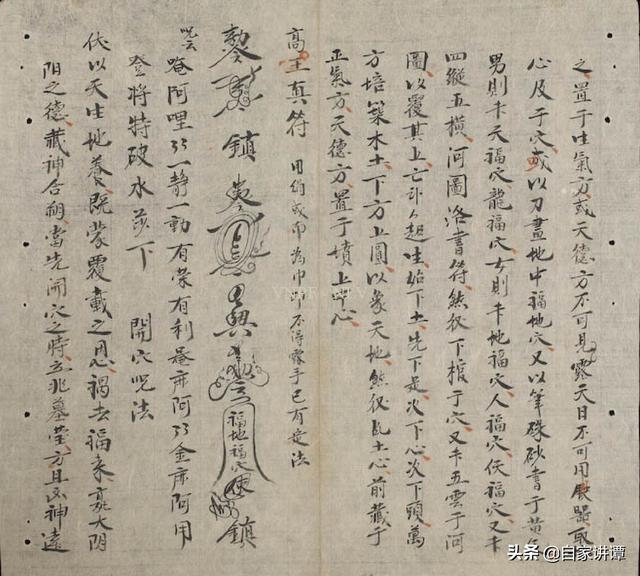 之置于生氣方或天德方不可見露天日不可用器取
心及于穴或以刀畫地中福地穴又以筆硃砂書于黃
男則卡天福穴龍福穴女則卡地福穴人福穴伕福穴又卡
四縱五橫河圖洛書符然後下棺于穴又卡五雲于河
圖以覆其上亡起生始下土先下足次下心次下頭萬
方培築木土下方上圓以象天地然後瓦土心前藏于
正氣方天德方置于墳上中心
高王真符 用或巾為巾不得露手已有定法
鎮 福地福穴 鎮
咒云 唵阿哩一靜一動有榮有利麻阿金麻阿用
登將特破水莎下 開穴咒法
伏以天生地養既蒙覆載之恩禍去福來大陰
陽之德藏神合朔當先開穴之時立兆墓塋方且凶神遠
头条 @自家讲谭